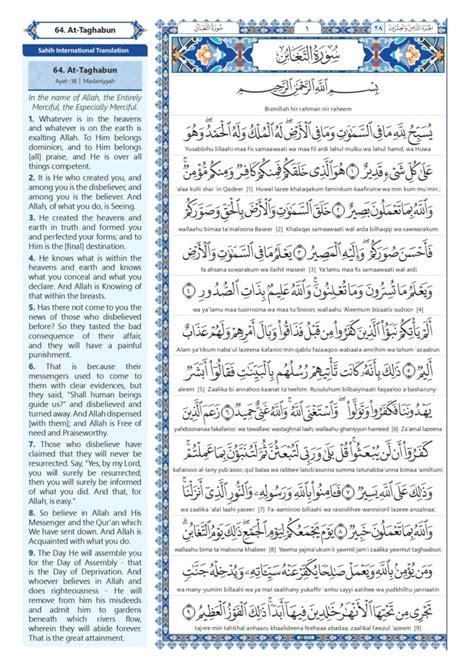 64. At-Taghabun
Sahih International Translation
64. At-Taghabun
Ayat : 18 | Madaniyyah
In the name of Allah, the Entirely
Merciful, the Especially Merciful.
1. Whatever is in the heavens
and whatever is on the earth is
exalting Allah. To Him belongs
dominion, and to Him belongs
[all] praise, and He is over all
things competent.
2. It is He who created you, and
among you is the disbeliever, and
among you is the believer. And
Allah, of what you do, is Seeing.
3. He created the heavens and
earth in truth and formed you
and perfected your forms; and to
Him is the [final] destination.
4. He knows what is within the
heavens and earth and knows
what you conceal and what you
declare. And Allah is Knowing of
that within the breasts.
5. Has there not come to you the
news of those who disbelieved
before? So they tasted the bad
consequence of their affair,
and they will have a painful
punishment.
6. That is because their
messengers used to come to
them with clear evidences, but
they said, "Shall human beings
guide us?" and disbelieved and
turned away. And Allah dispensed
[with them]; and Allah is Free of
need and Praiseworthy.
7. Those who disbelieve have
claimed that they will never be
resurrected. Say, "Yes, by my Lord,
you will surely be resurrected;
then you will surely be informed
of what you did. And that, for
Allah, is easy."
8. So believe in Allah and His
Messenger and the Qur'an which
We have sent down. And Allah is
Acquainted with what you do.
9. The Day He will assemble you
for the Day of Assembly - that
is the Day of Deprivation. And
whoever believes in Allah and
does righteousness - He will
remove from him his misdeeds
and admit him to gardens
beneath which rivers flow,
wherein they will abide forever.
That is the great attainment.
سُورَةُ التَّغَابُنِ
١
الجُزءُ الثَّامِنُ وَالعِشرُونَ ٢٨
سُورَةُ التَّغَابُنِ
بِسْمِ اللَّهِ الرَّحْمَٰنِ الرَّحِيمِ
Bismillah hir rahman nir raheem
يُسَبِّحُ لِلَّهِ مَا فِي السَّمَٰوَٰتِ وَمَا فِي الْأَرْضِ ۖ لَهُ الْمُلْكُ وَلَهُ الْحَمْدُ ۖ وَهُوَ
Yusabbihu lillaahi maa fis samaawaati wa maa fil ardi lahul mulku wa lahul hamd, wa Huwa
عَلَىٰ كُلِّ شَيْءٍ قَدِيرٌ ١ هُوَ الَّذِي خَلَقَكُمْ فَمِنكُمْ كَافِرٌ وَمِنكُم مُّؤْمِنٌ ۚ
'alaa kulli shai 'in Qadeer [1] Huwal lazee khalaqakum faminkum kaafirunw wa min kum mu'min;
وَاللَّهُ بِمَا تَعْمَلُونَ بَصِيرٌ ٢ خَلَقَ السَّمَٰوَٰتِ وَالْأَرْضَ بِالْحَقِّ وَصَوَّرَكُمْ
wallaahu bimaa ta'maloona Baseer [2] Khalaqas samaawaati wal arda bilhaqqi wa sawwarakum
فَأَحْسَنَ صُوَرَكُمْ ۖ وَإِلَيْهِ الْمَصِيرُ ٣ يَعْلَمُ مَا فِي السَّمَٰوَٰتِ وَالْأَرْضِ
fa ahsana suwarakum wa ilaihil maseer [3] Ya'lamu maa fis samaawaati wal ardi
وَيَعْلَمُ مَا تُسِرُّونَ وَمَا تُعْلِنُونَ ۚ وَاللَّهُ عَلِيمٌ بِذَاتِ الصُّدُورِ ٤
wa ya'lamu maa tusirroona wa maa tu'linoon; wallaahu 'Aleemum bizaatis sudoor [4]
أَلَمْ يَأْتِكُمْ نَبَأُ الَّذِينَ كَفَرُوا مِن قَبْلُ فَذَاقُوا وَبَالَ أَمْرِهِمْ وَلَهُمْ عَذَابٌ
Alam ya'tikum naba'ul lazeena kafaroo min qablu fazaaqoo wabaala amrihim wa lahum 'azaabun
أَلِيمٌ ٥ ذَٰلِكَ بِأَنَّهُ كَانَت تَّأْتِيهِمْ رُسُلُهُم بِالْبَيِّنَٰتِ فَقَالُوا أَبَشَرٌ
aleem [5] Zaalika bi annahoo kaanat ta'teehim Rusuluhum bilbaiyinaati faqaaloo a basharuny-
يَهْدُونَنَا فَكَفَرُوا وَتَوَلَّوا ۚ وَّاسْتَغْنَى اللَّهُ ۚ وَاللَّهُ غَنِيٌّ حَمِيدٌ ٦ زَعَمَ الَّذِينَ
yahdoonanaa fakafaroo wa tawallaw; wastaghnal laah; wallaahu ghaniyyun hameed [6] Za'amal lazeena
كَفَرُوا أَن لَّن يُبْعَثُوا ۚ قُلْ بَلَىٰ وَرَبِّي لَتُبْعَثُنَّ ثُمَّ لَتُنَبَّؤُنَّ بِمَا عَمِلْتُمْ ۚ
kafarooo al-lany yub'asoo; qul balaa wa rabbee latub'asunna summa latunabba'unna bimaa 'amiltum;
وَذَٰلِكَ عَلَى اللَّهِ يَسِيرٌ ٧ فَـَٔامِنُوا بِاللَّهِ وَرَسُولِهِ وَالنُّورِ الَّذِي أَنزَلْنَا ۚ
wa zaalika 'alal laahi yaseer [7] Fa-aaminoo billaahi wa rasoolihee wannooril lazeee anzalnaa;
وَاللَّهُ بِمَا تَعْمَلُونَ خَبِيرٌ ٨ يَوْمَ يَجْمَعُكُمْ لِيَوْمِ الْجَمْعِ ۖ ذَٰلِكَ يَوْمُ التَّغَابُنِ ۗ
wallaahu bima ta'maloona khabeer [8] Yawma yajma'ukum li yawmil jam'i zaalika yawmut taghaabun;
وَمَن يُؤْمِن بِاللَّهِ وَيَعْمَلْ صَالِحًا يُكَفِّرْ عَنْهُ سَيِّـَٔاتِهِ وَيُدْخِلْهُ جَنَّٰتٍ
wa many-yumim billaahi wa ya'mal saalihany yukaffir 'anhu sayyi aatihee wa yudkhilhu jannaatin
تَجْرِي مِن تَحْتِهَا الْأَنْهَٰرُ خَٰلِدِينَ فِيهَا أَبَدًا ۚ ذَٰلِكَ الْفَوْزُ الْعَظِيمُ ٩
tajree min tahtihal anhaaru khaalideena feehaaa abadaa; zaalikal fawzul 'azeem [9]